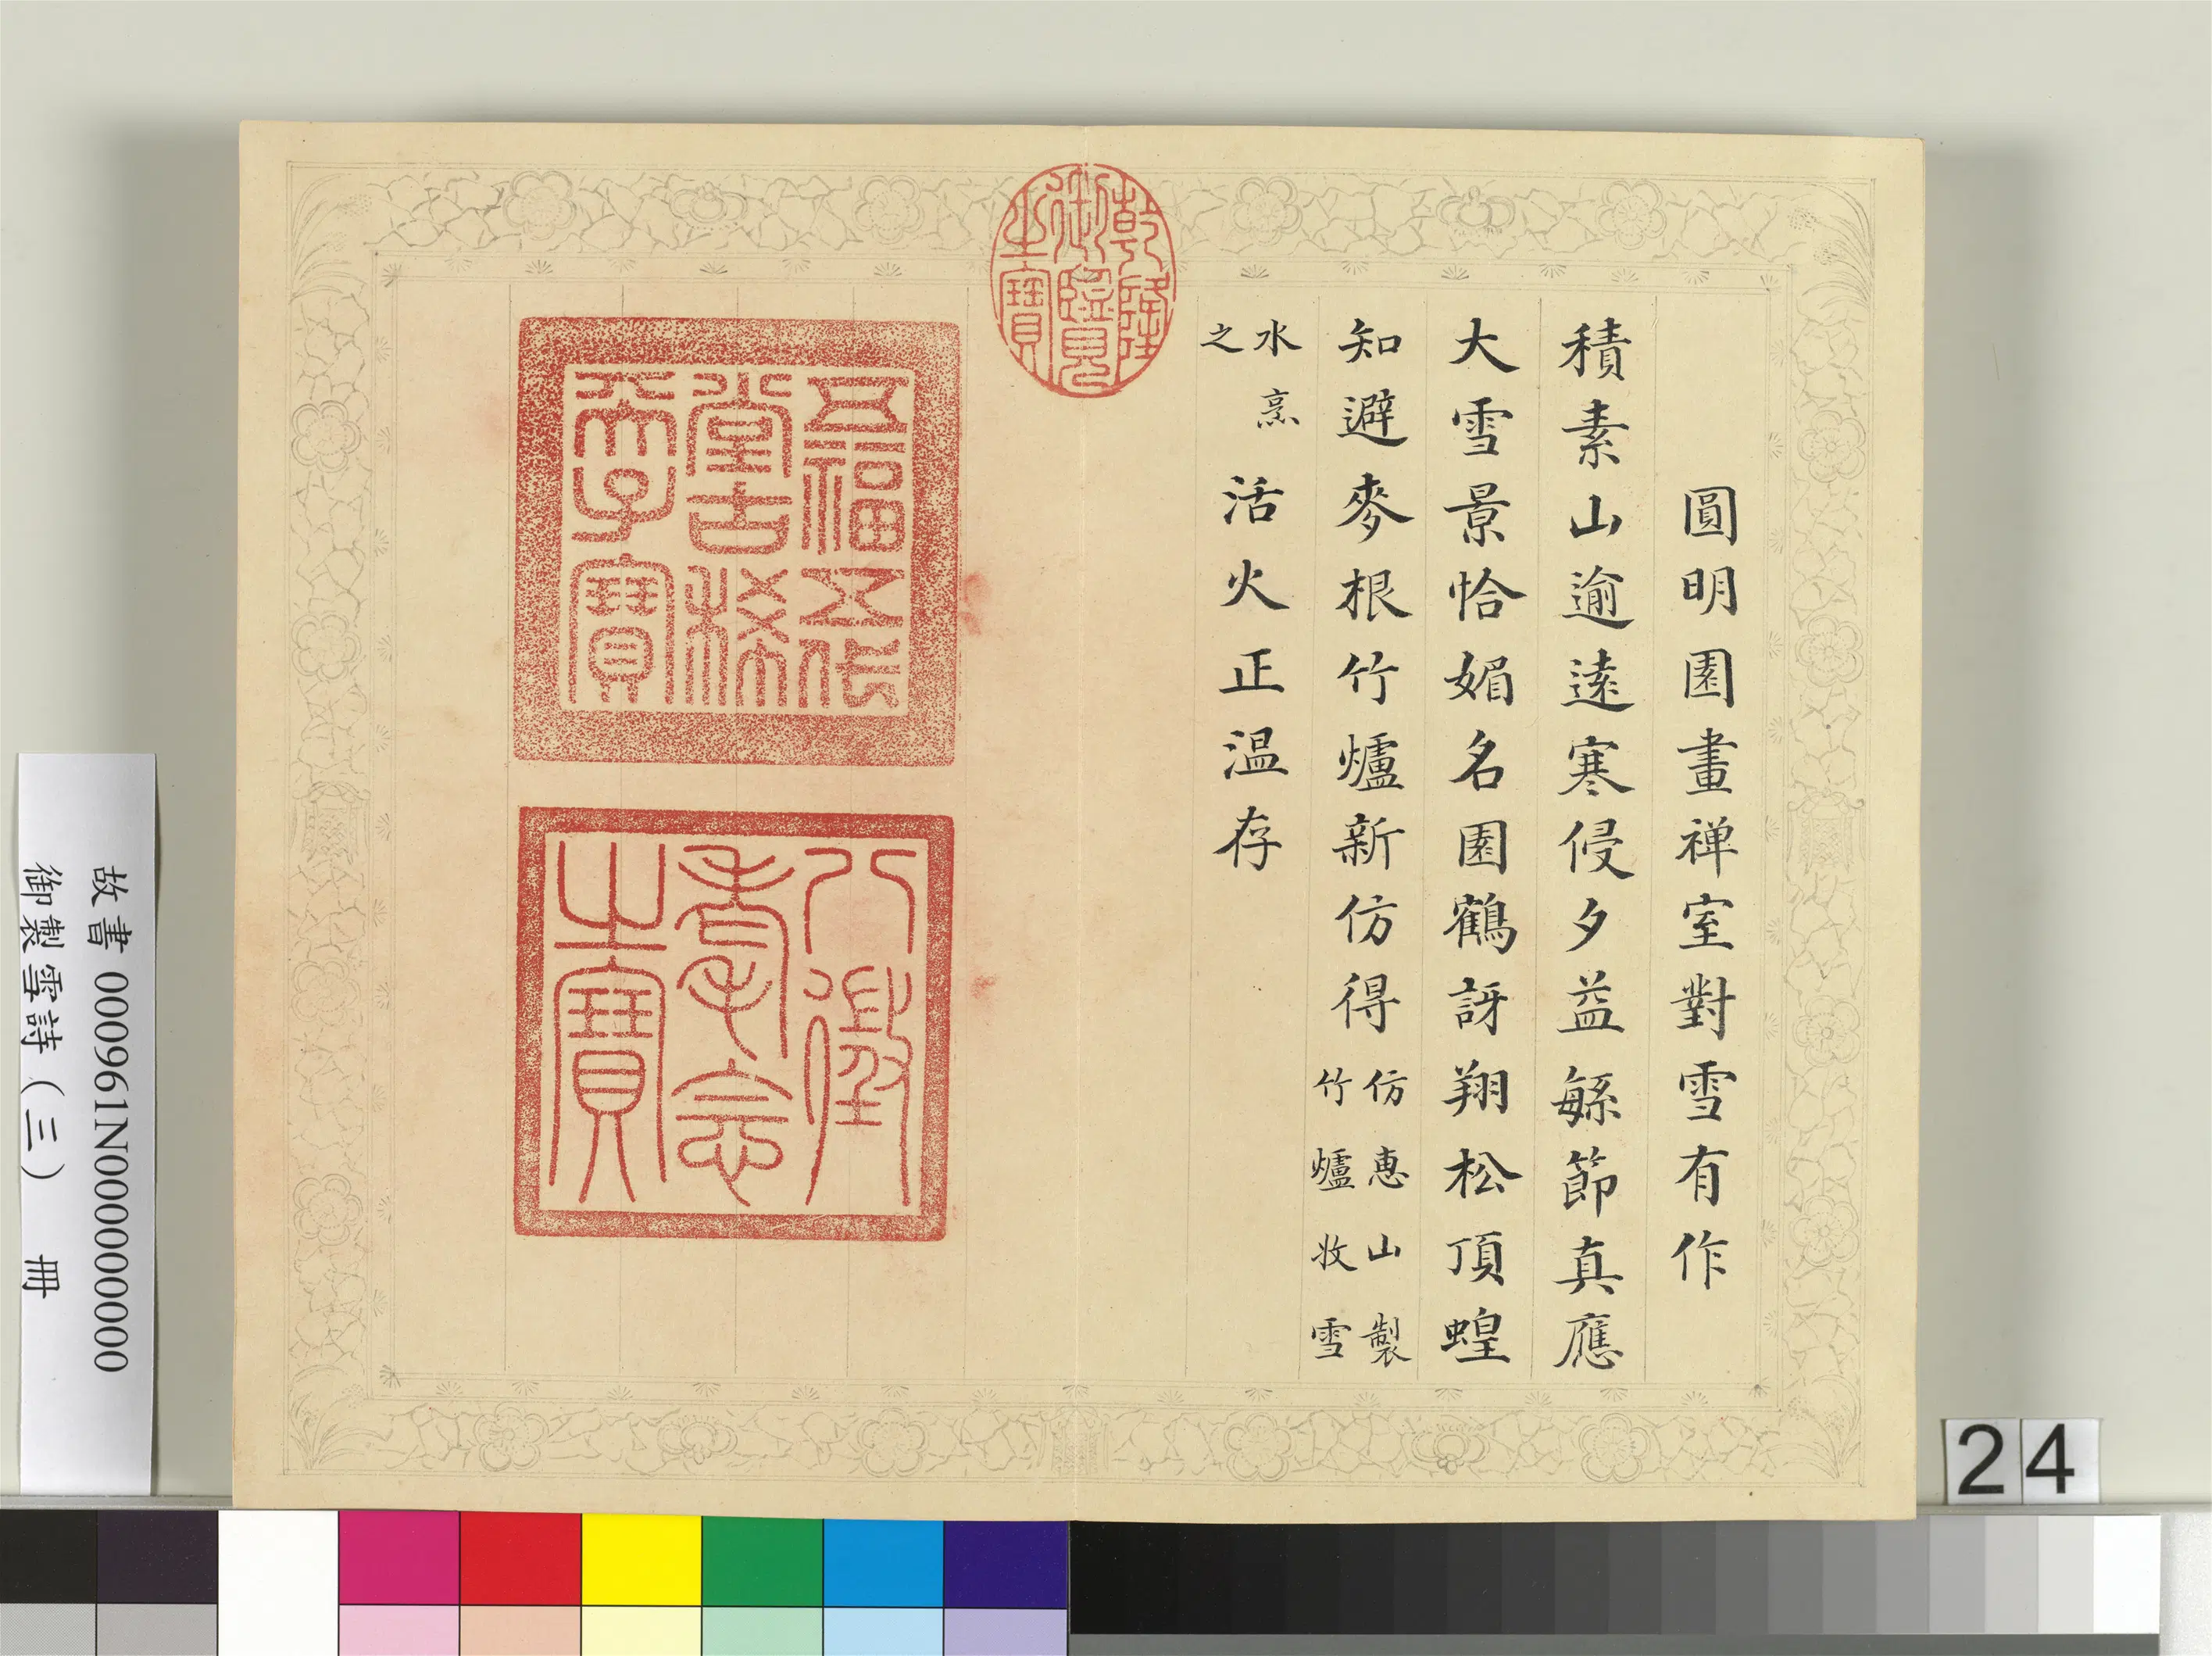 圓明園畫禪室對雪有作
積素山逾遠寒侵夕益緐節真應
大雪景恰媚名園鶴訝翔松頂蝗
知避麥根竹爐新仿得仿惠山製
竹爐收雪
水烹
之
活火正温存
乾隆
御覽
之寶
五福五代
堂古稀
天子寶
八徵
耄念
之寶
故書 000961N000000000
御製雪詩（三） 冊
24